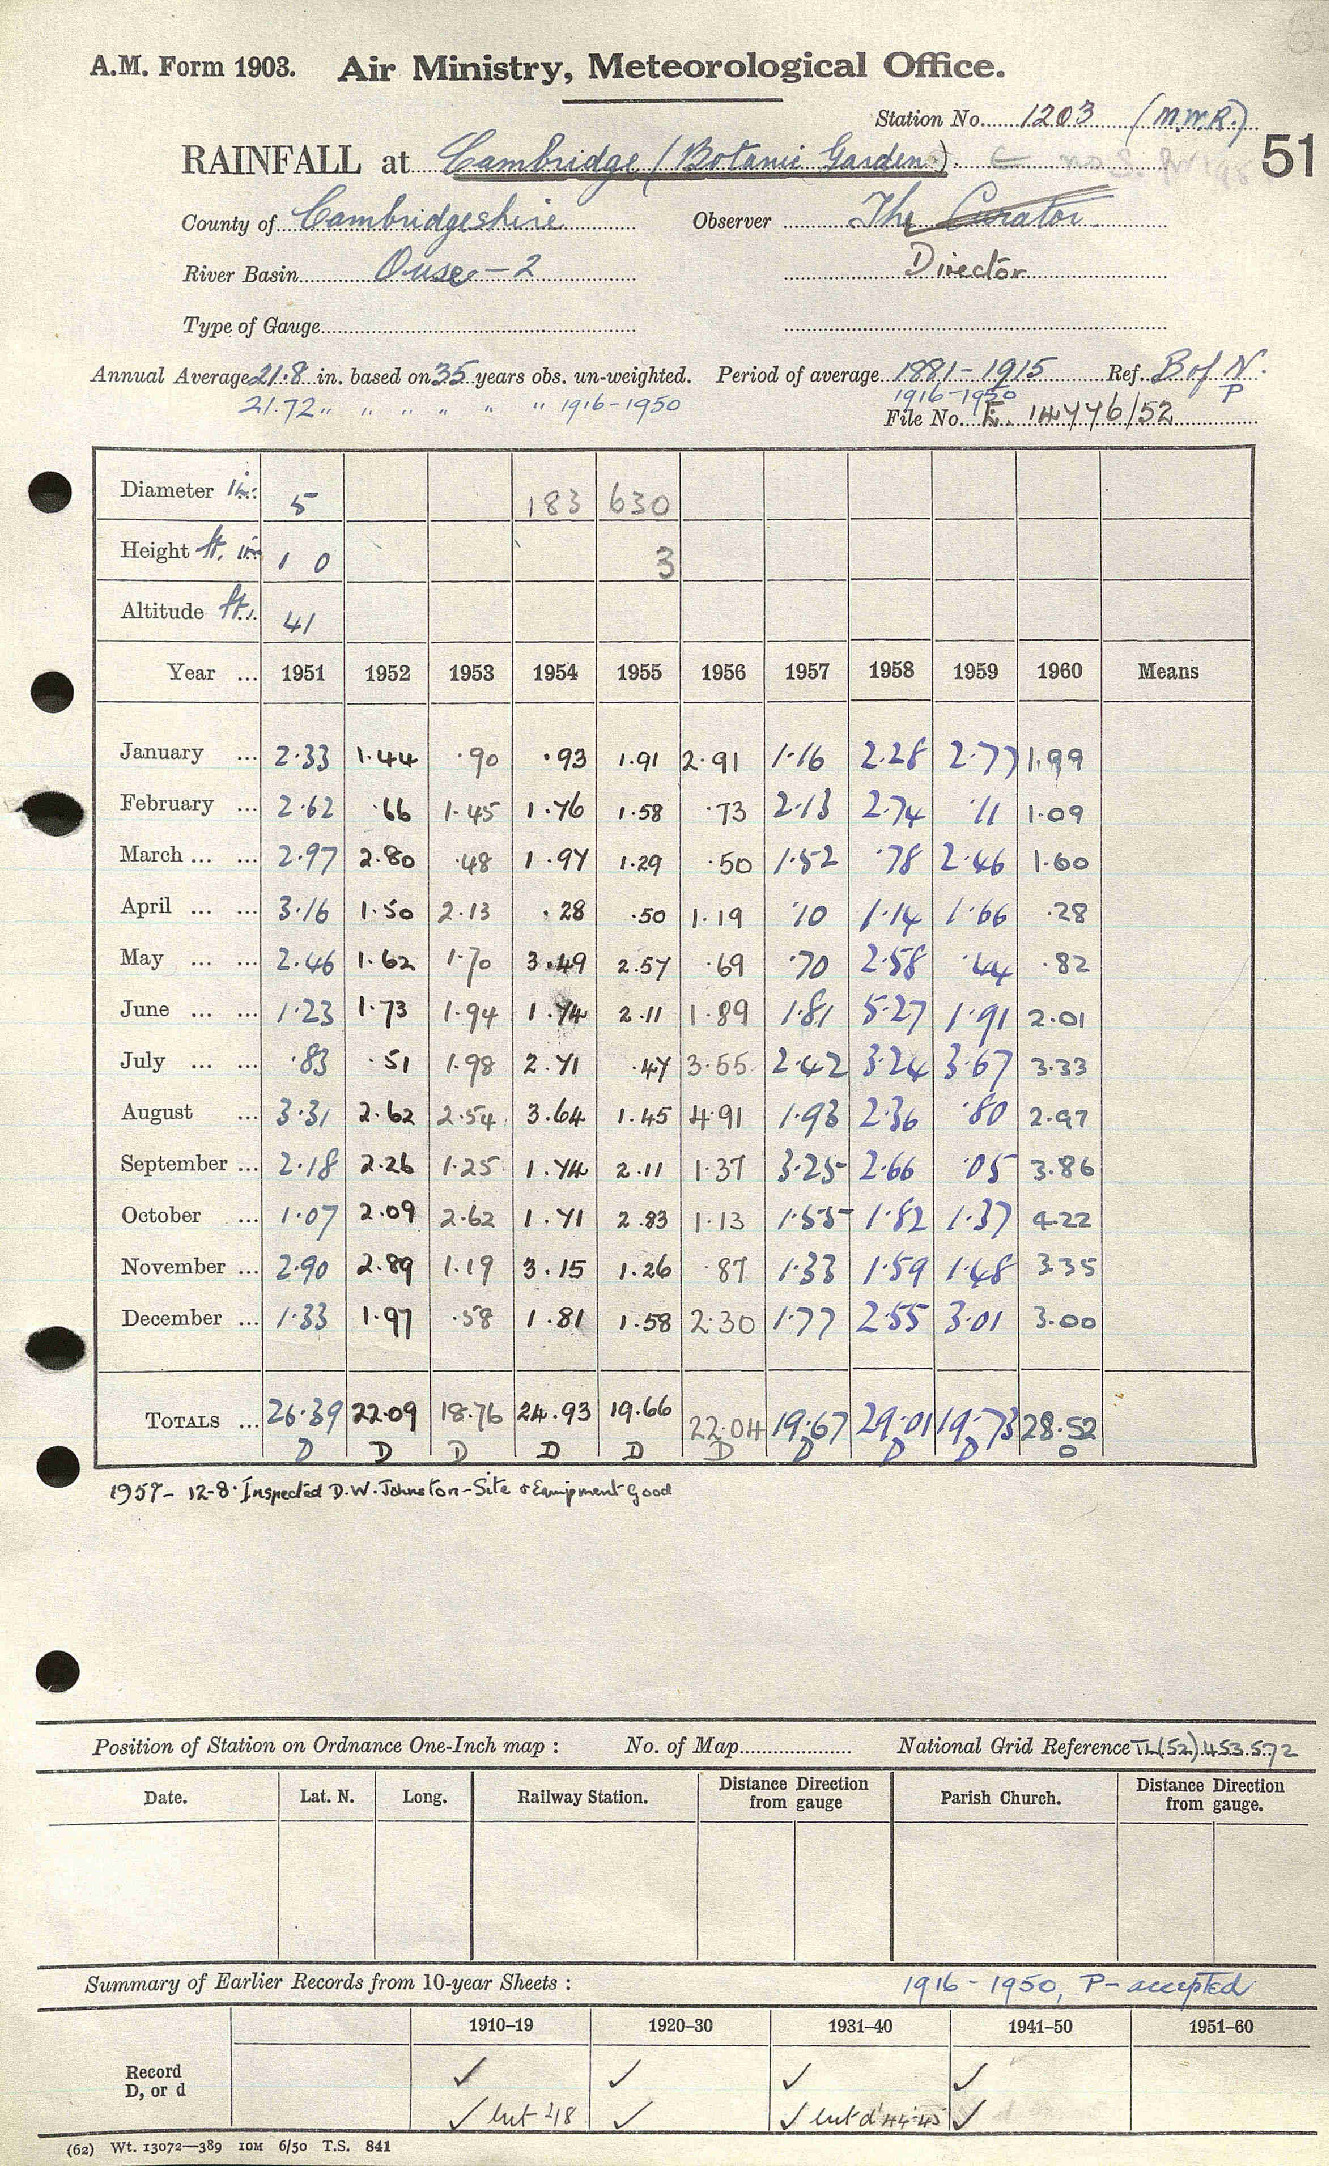 A.M. Form 1903. Air Ministry, Meteorological Office.
Station No. 1203 (M.W.R.)
RAINFALL at Cambridge (Botanic Garden). 51
County of Cambridgeshire Observer The Curator
River Basin Ouse-2 Director
Type of Gauge
Annual Average 21.8 in. based on 35 years obs. un-weighted. Period of average 1881-1915 Ref. B of N.
21.72 " " " " " " 1916-1950 1916-1950 P
File No. E. 14776/52
Diameter in. 5 183 630
Height ft. in. 1 0 3
Altitude ft. 41
Year ... 1951 1952 1953 1954 1955 1956 1957 1958 1959 1960 Means
January ... 2.33 1.44 .90 .93 1.91 2.91 1.16 2.28 2.77 1.99
February ... 2.62 .66 1.45 1.76 1.58 .73 2.13 2.74 .11 1.09
March ... ... 2.97 2.80 .48 1.97 1.29 .50 1.52 .78 2.46 1.60
April ... ... 3.16 1.50 2.13 .28 .50 1.19 .10 1.14 1.66 .28
May ... ... 2.46 1.62 1.70 3.49 2.57 .69 .70 2.58 .44 .82
June ... ... 1.23 1.73 1.94 1.74 2.11 1.89 1.81 5.27 1.91 2.01
July ... ... .83 .51 1.98 2.71 .47 3.55 2.42 3.24 3.67 3.33
August ... 3.31 2.62 2.54 3.64 1.45 4.91 1.93 2.36 .80 2.97
September ... 2.18 2.26 1.25 1.74 2.11 1.37 3.25 2.66 .05 3.86
October ... 1.07 2.09 2.62 1.71 2.83 1.13 1.55 1.82 1.37 4.22
November ... 2.90 2.89 1.19 3.15 1.26 .87 1.33 1.59 1.48 3.35
December ... 1.33 1.97 .58 1.81 1.58 2.30 1.77 2.55 3.01 3.00
TOTALS ... 26.39 22.09 18.76 24.93 19.66 22.04 19.67 29.01 19.73 28.52
D D D D D D D D D D
1957- 12-8. Inspected D.W. Johnston - Site & Equipment Good
Position of Station on Ordnance One-Inch map : No. of Map National Grid Reference TL(52).453.572
Date. Lat. N. Long. Railway Station. Distance Direction from gauge Parish Church. Distance Direction from gauge.
Summary of Earlier Records from 10-year Sheets : 1916-1950, P-accepted
1910-19 1920-30 1931-40 1941-50 1951-60
Record ✓ ✓ ✓ ✓
D, or d
✓ but '18 ✓ ✓ but d '44-45 ✓
(62) Wt. 13072—389 10M 6/50 T.S. 841